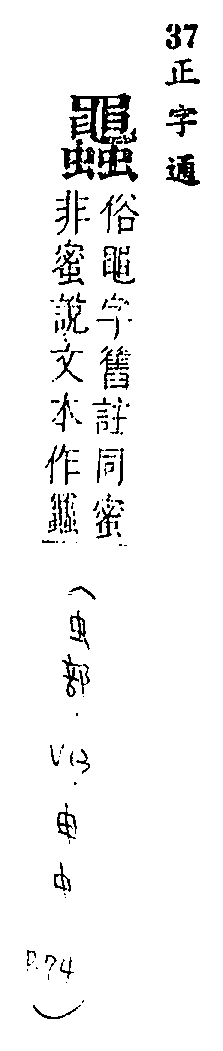 37正字通
俗黽字舊註同蜜
非蜜說文本作
(虫部.V13.申中 P.74)